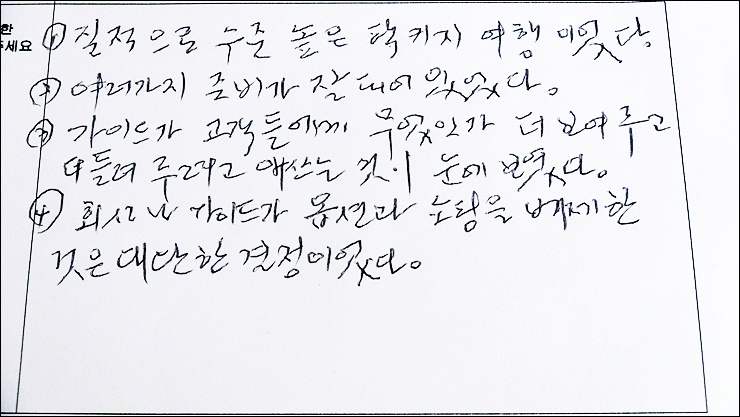 한
주세요
① 질적으로 수준 높은 팩키지 여행이었다
② 여러가지 준비가 잘 되어 있었다.
③ 가이드가 고객들에게 무엇인가 더 보여 주고
더 들려 주려고 애쓰는 것이 눈에 보였다.
④ 회사나 가이드가 옵션과 노팅을 배제한
것은 대단한 결정이었다.